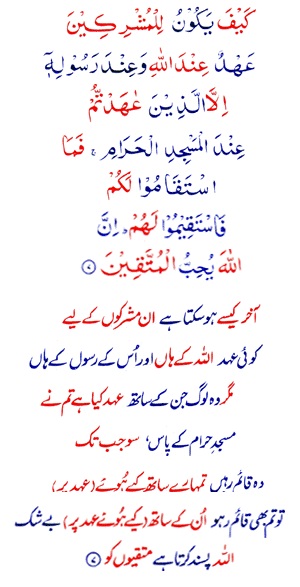 كَيْفَ يَكُوْنُ لِلْمُشْرِكِيْنَ
عَهْدٌ عِنْدَ اللّٰهِ وَعِنْدَ رَسُوْلِهٖٓ
اِلَّا الَّذِيْنَ عٰهَدْتُّمْ
عِنْدَ الْمَسْجِدِ الْحَرَامِ ۚ فَمَا
اسْتَقَامُوْا لَكُمْ
فَاسْتَقِيْمُوْا لَهُمْ ؕ اِنَّ
اللّٰهَ يُحِبُّ الْمُتَّقِيْنَ ﴿۷﴾
آخر کیسے ہوسکتا ہے ان مشرکوں کے لیے
کوئی عہد اللہ کے ہاں اور اُس کے رسول کے ہاں
مگر وہ لوگ جن کے ساتھ عہد کیا ہے تم نے
مسجدِ حرام کے پاس، سو جب تک
وہ قائم رہیں تمہارے ساتھ کیے ہُوئے (عہد پر)
تو تم بھی قائم رہو اُن کے ساتھ (کیے ہُوئے عہد پر) بے شک
اللہ پسند کرتا ہے متقیوں کو ﴿۷﴾